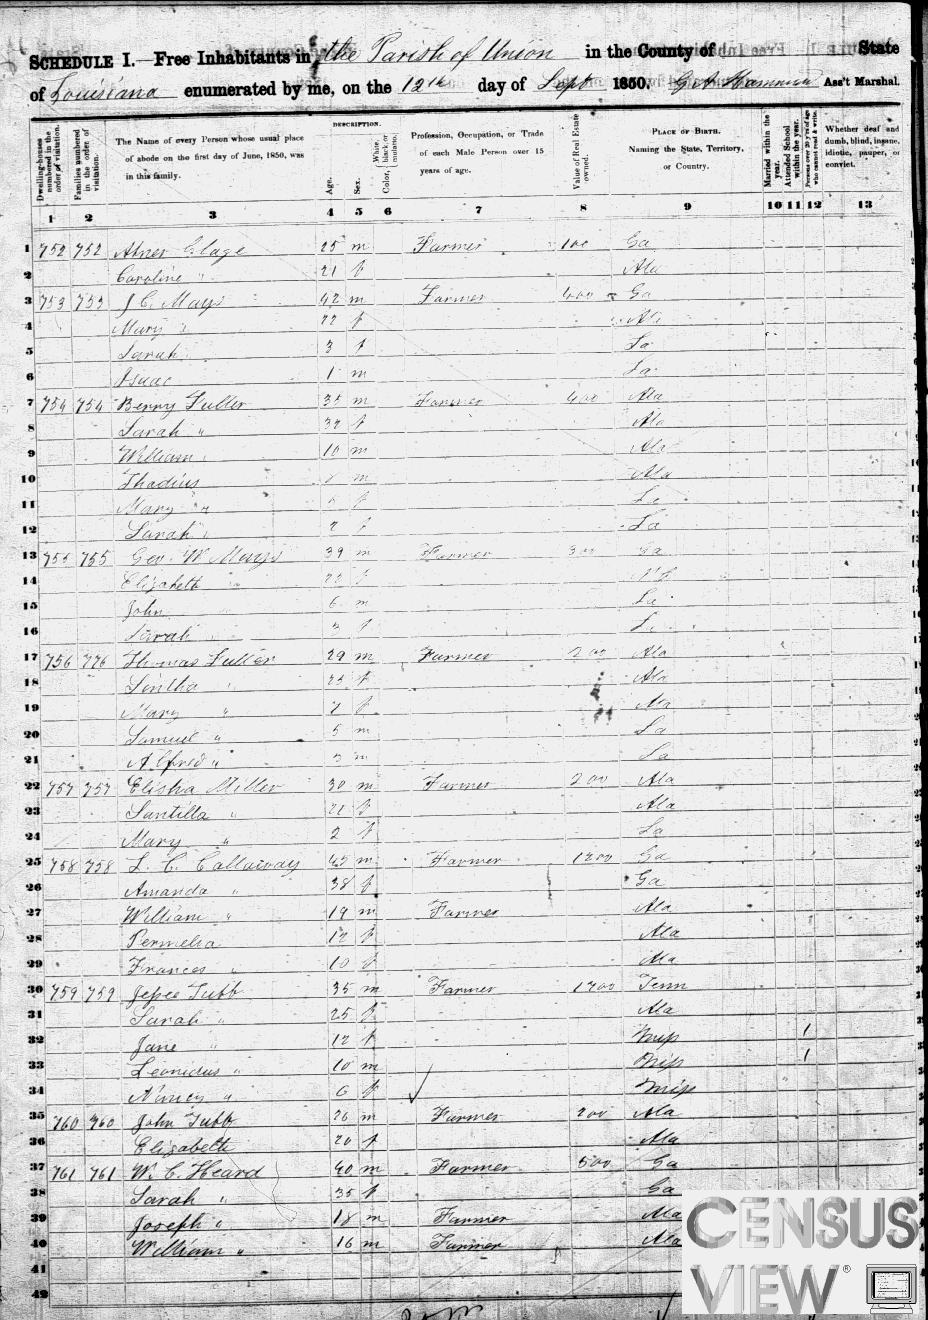 SCHEDULE I.—Free Inhabitants in the Parish of Union in the County of State
of Louisiana enumerated by me, on the 12th day of Sept 1850. Ass't Marshal.
Dwelling-houses numbered in the order of visitation.
Families numbered in the order of visitation.
The Name of every Person whose usual place of abode on the first day of June, 1850, was in this family.
DESCRIPTION.
Age.
Sex.
Color, White, black, or mulatto.
Profession, Occupation, or Trade of each Male Person over 15 years of age.
Value of Real Estate owned.
PLACE OF BIRTH. Naming the State, Territory, or Country.
Married within the year.
Attended School within the year.
Persons over 20 y'rs of age who cannot read & write.
Whether deaf and dumb, blind, insane, idiotic, pauper, or convict.
1 2 3 4 5 6 7 8 9 10 11 12 13
1 752 752 Abner 25 m Farmer 100 Ga
2 Caroline " 21 f Ala
3 753 753 J C. Mays 42 m Farmer 400 Ga
4 Mary " 22 f Ala
5 Sarah " 3 f La
6 Isaac 1 m La
7 754 754 Berry Fuller 35 m Farmer 400 Ala
8 Sarah " 32 f Ala
9 William " 10 m Ala
10 Thadius m Ala
11 Mary " f La
12 Sarah " 2 f La
13 755 755 Geo. W Mays 39 m Farmer 300 Ga
14 Elizabeth " 22 f
15 John " 6 m La
16 Sarah " 3 f La
17 756 776 Thomas Fuller 29 m Farmer 200 Ala
18 Sintha " 25 f Ala
19 Mary " 7 f Ala
20 Samuel " 5 m La
21 Alfred " 3 m La
22 757 757 Elisha Miller 30 m Farmer 200 Ala
23 Santilla " 21 f Ala
24 Mary " 2 f La
25 758 758 L. C. Callaway 45 m Farmer 1200 Ga
26 Amanda " 38 f Ga
27 William " 19 m Farmer Ala
28 Permelia 12 f Ala
29 Frances " 10 f Ala
30 759 759 Jesse Tubb 35 m Farmer 1200 Tenn
31 Sarah " 25 f Ala
32 Jane " 12 f Miss 1
33 Leonidus " 10 m Miss 1
34 Nancy " 6 f Miss
35 760 760 John Tubb 26 m Farmer 200 Ala
36 Elizabeth 20 f Ala
37 761 761 W. C. Heard 40 m Farmer 500 Ga
38 Sarah " 35 f Ga
39 Joseph " 18 m Farmer Ala
40 William " 16 m Farmer Ala
41
42
CENSUS
VIEW®